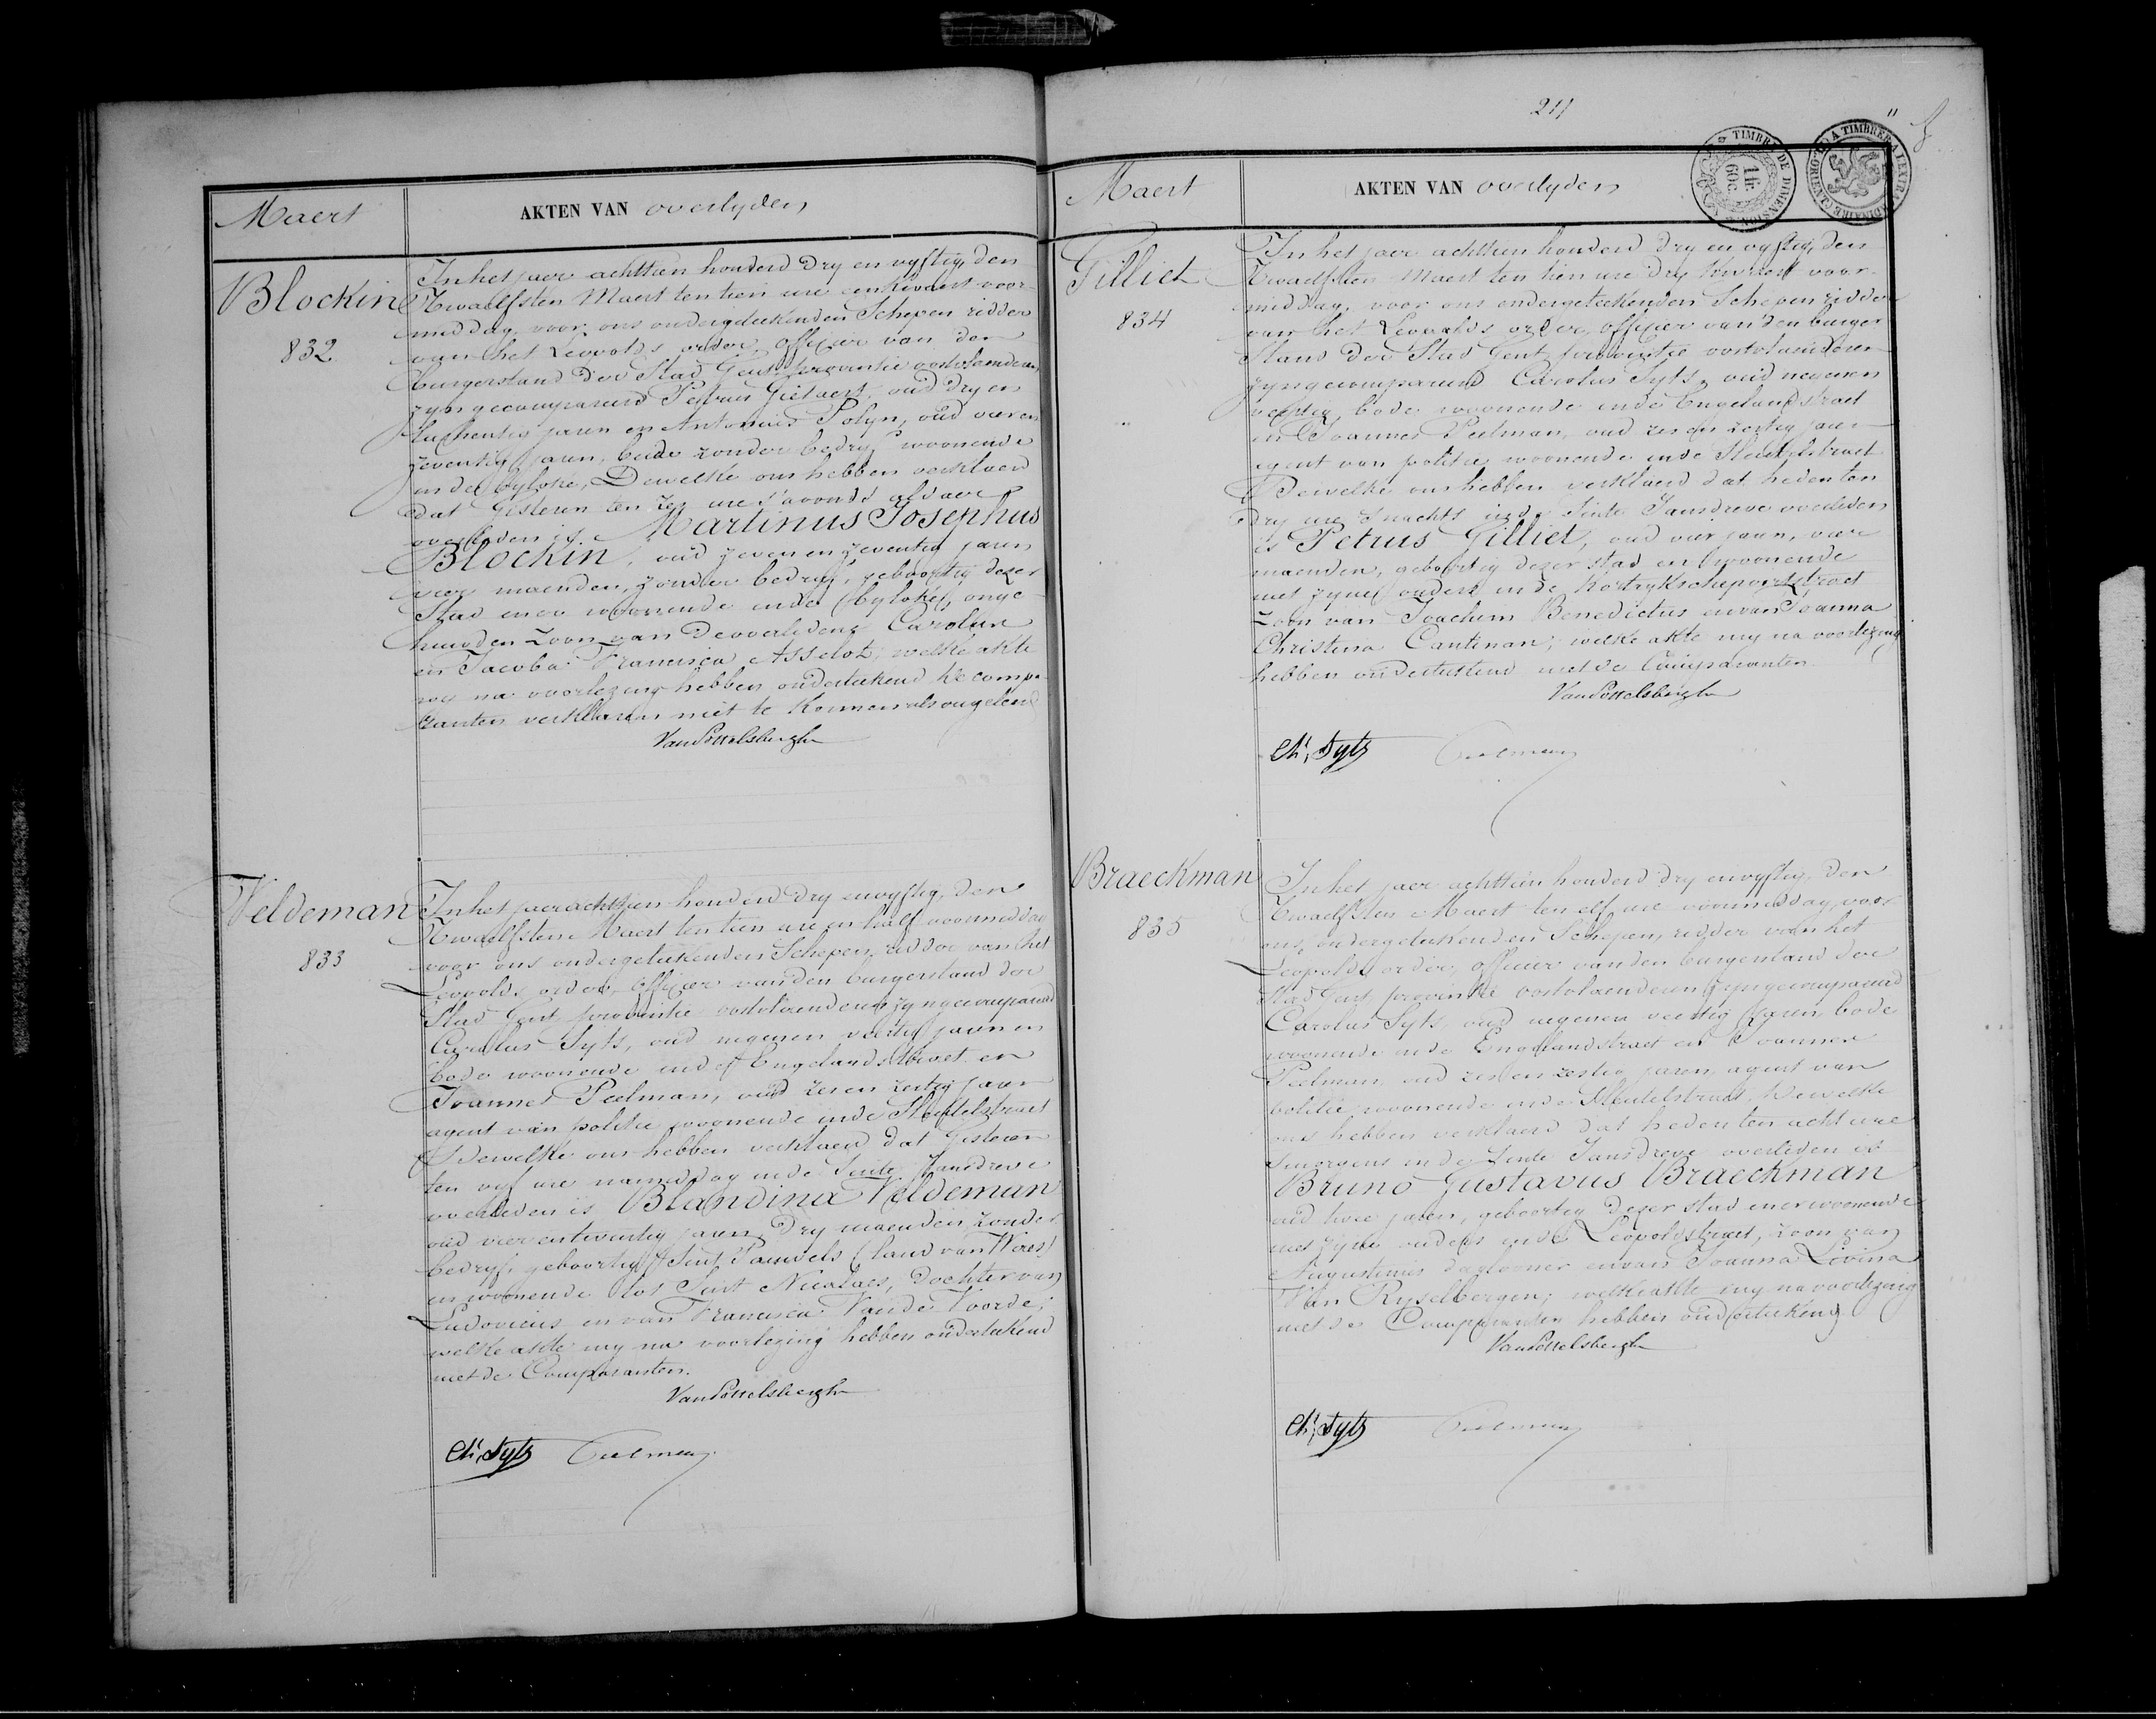 Maert
AKTEN VAN overlyden
Blockin
832
In het jaer achttien honderd dry en vyftig, den
twaelfsten Maert ten tien ure een kwaert voor-
middag, voor ons ondergeteekenden Schepen ridder
van het Leopolds order, officier van den
burgerstand der Stad Gent provintie oostvlaenderen
zyn gecompareerd Petrus Gietaert, oud dry en
tachentig jaren en Antonius Polyn, oud vier en
zeventig jaren, beide zonder bedryf woonende
in de byloke, Dewelke ons hebben verklaerd
dat gisteren ten zes ure s'avonds aldaer
overleden is Martinus Josephus
Blockin, oud zeven en zeventig jaren
vier maenden, zonder bedryf, geboortig dezer
Stad en er woonende in de byloke, onge-
huwden zoon van de overledene Carolus
en Jacoba Francisca Asselot; welke akte
wy na voorlezing hebben onderteekend de compa-
ranten verklaren niet te konnen als ongeleerd
Van Pottelsberghe
Veldeman
833
In het jaer achttien honderd dry en vyftig, den
twaelfsten Maert ten tien ure en half voormiddag
voor ons ondergeteekenden Schepen, ridder van het
Leopolds order, officier van den burgerstand der
Stad Gent provintie oostvlaenderen zyn gecompareerd
Carolus Syts, oud negen en veertig jaren
bode woonende in de Engelandstraet en
Joannes Peelman, oud zes en zestig jaren
agent van politie woonende in de Sleutelstraet
Dewelke ons hebben verklaerd dat gisteren
ten vyf ure namiddag in de Sinte Jansdreve
overleden is Blandina Veldeman
oud vier en twentig jaren dry maenden, zonder
bedryf, geboortig Sint Pauwels (land van Waes)
en woonende tot Sint Nicolaes, dochter van
Ludovicus en van Francisca Van de Voorde;
welke akte wy na voorlezing hebben onderteekend
met de Comparanten.
Van Pottelsberghe
Ch. Syts Peelman
211
Maert
AKTEN VAN overlyden
TIMBRE DE DIMENSION
1 fr. 60 c.
A TIMBRER A L'EXTRAORDINAIRE
Gilliet
834
In het jaer achttien honderd dry en vyftig, den
twaelfsten Maert ten tien ure dry kwaert voor-
middag, voor ons ondergeteekenden Schepen ridder
van het Leopolds order officier van den burger
stand der Stad Gent provintie oostvlaenderen
zyn gecompareerd Carolus Syts, oud negen en
veertig, bode woonende in de Engelandstraet
en Joannes Peelman, oud zes en zestig jaren
agent van politie woonende in de Sleutelstraet
Dewelke ons hebben verklaerd dat heden ten
dry ure s'nachts in de Sinte Jansdreve overleden
is Petrus Gilliet, oud vier jaren, vier
maenden, geboortig dezer stad en er woonende
met zyne ouders in de Kortrykschepoortstraet
zoon van Joachim Benedictus en van Joanna
Christina Cantinan; welke akte wy na voorlezing
hebben onderteekend met de Comparanten
Van Pottelsberghe
Ch. Syts Peelman
Braeckman
835
In het jaer achttien honderd dry en vyftig, den
twaelfsten Maert ten elf ure voormiddag, voor
ons ondergeteekenden Schepen, ridder van het
Leopolds order, officier van den burgerstand der
Stad Gent, provintie oostvlaenderen zyn gecompareerd
Carolus Syts, oud negen en veertig jaren, bode
woonende in de Engelandstraet en Joannes
Peelman, oud zes en zestig jaren, agent van
politie woonende in de Sleutelstraet, Dewelke
ons hebben verklaerd dat heden ten acht ure
smorgens in de Sinte Jansdreve overleden is
Bruno Gustavus Braeckman
oud twee jaren, geboortig dezer stad en er woonende
met zyne ouders in de Leopoldstraet, zoon van
Augustinus daglooner en van Joanna Livina
Van Rysselbergen; welke akte wy na voorlezing
met de Comparanten hebben onderteekend
Van Pottelsberghe
Ch. Syts Peelman